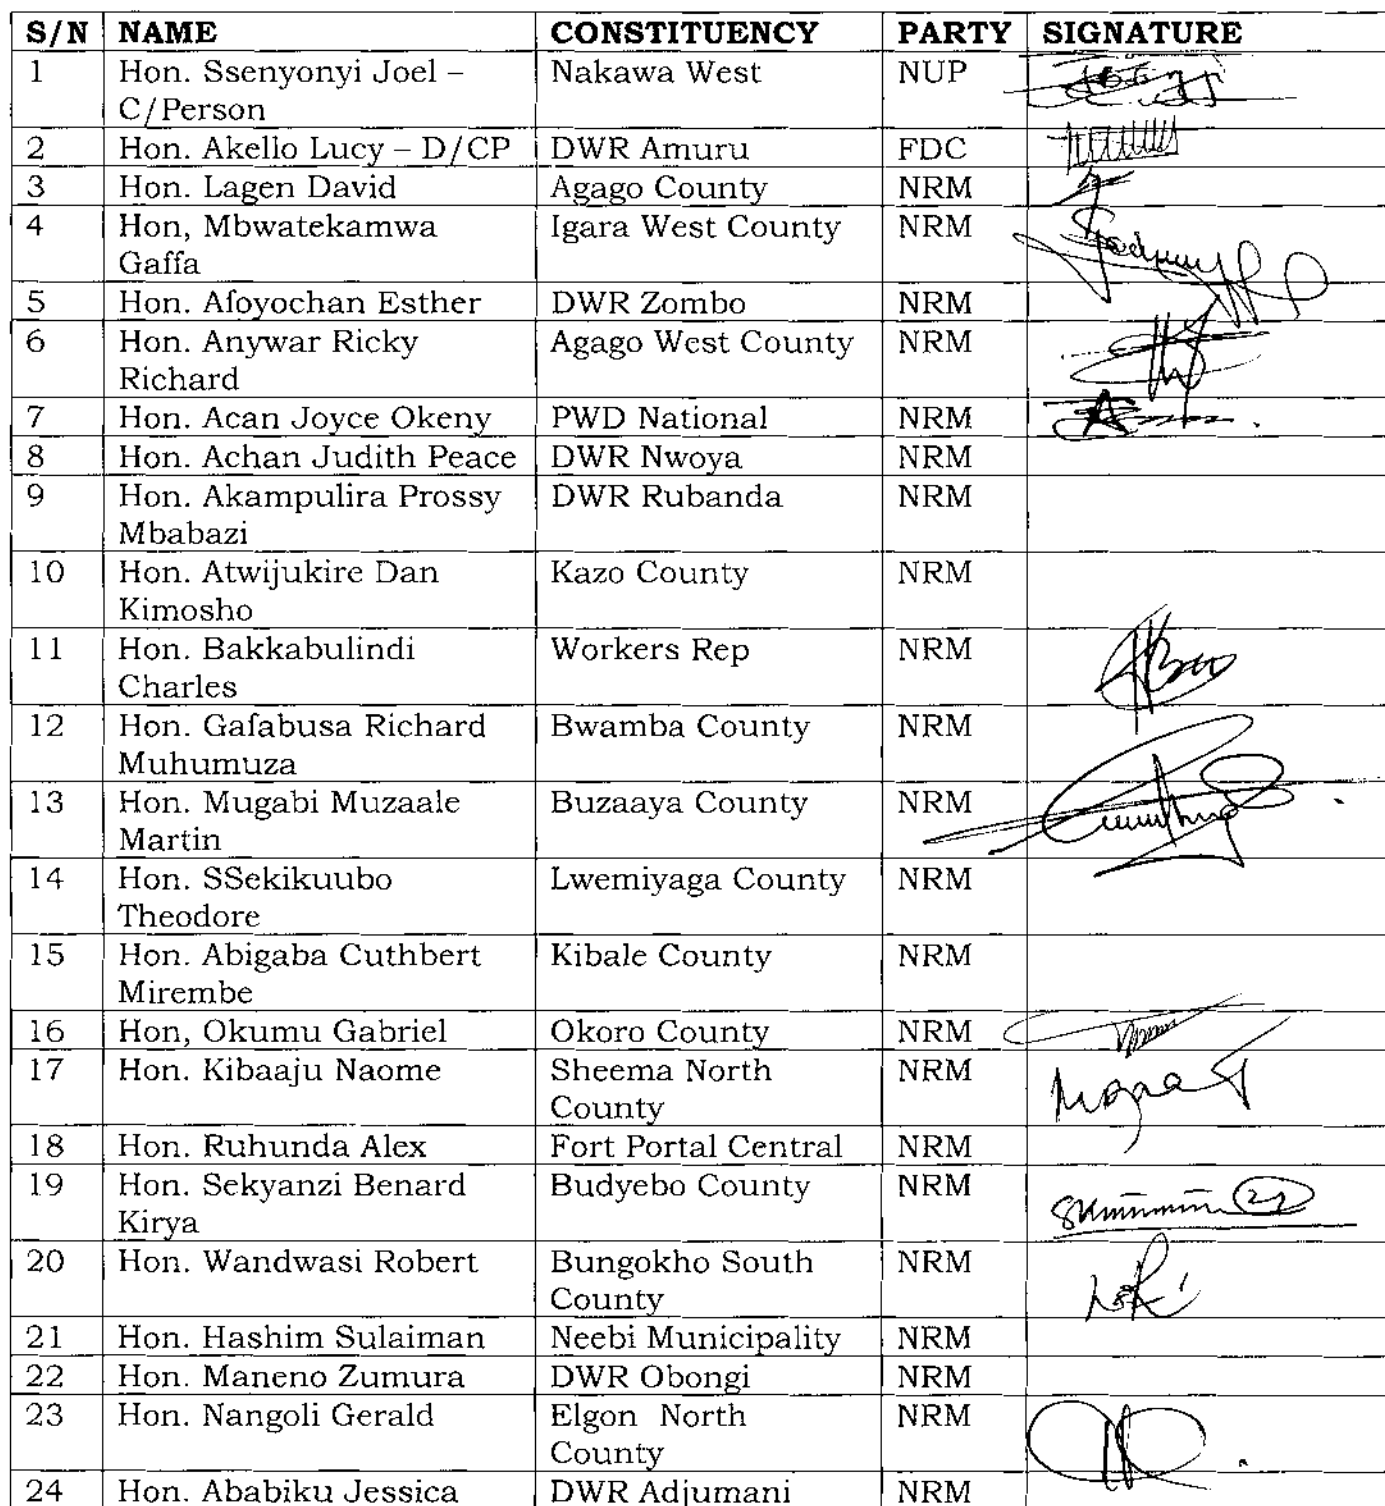 S/N NAME CONSTITUENCY PARTY SIGNATURE
1 Hon. Ssenyonyi Joel – Nakawa West NUP
C/Person
2 Hon. Akello Lucy – D/CP DWR Amuru FDC
3 Hon. Lagen David Agago County NRM
4 Hon, Mbwatekamwa Igara West County NRM
Gaffa
5 Hon. Afoyochan Esther DWR Zombo NRM
6 Hon. Anywar Ricky Agago West County NRM
Richard
7 Hon. Acan Joyce Okeny PWD National NRM
8 Hon. Achan Judith Peace DWR Nwoya NRM
9 Hon. Akampulira Prossy DWR Rubanda NRM
Mbabazi
10 Hon. Atwijukire Dan Kazo County NRM
Kimosho
11 Hon. Bakkabulindi Workers Rep NRM
Charles
12 Hon. Gafabusa Richard Bwamba County NRM
Muhumuza
13 Hon. Mugabi Muzaale Buzaaya County NRM
Martin
14 Hon. SSekikuubo Lwemiyaga County NRM
Theodore
15 Hon. Abigaba Cuthbert Kibale County NRM
Mirembe
16 Hon, Okumu Gabriel Okoro County NRM
17 Hon. Kibaaju Naome Sheema North NRM
County
18 Hon. Ruhunda Alex Fort Portal Central NRM
19 Hon. Sekyanzi Benard Budyebo County NRM
Kirya
20 Hon. Wandwasi Robert Bungokho South NRM
County
21 Hon. Hashim Sulaiman Neebi Municipality NRM
22 Hon. Maneno Zumura DWR Obongi NRM
23 Hon. Nangoli Gerald Elgon North NRM
County
24 Hon. Ababiku Jessica DWR Adjumani NRM